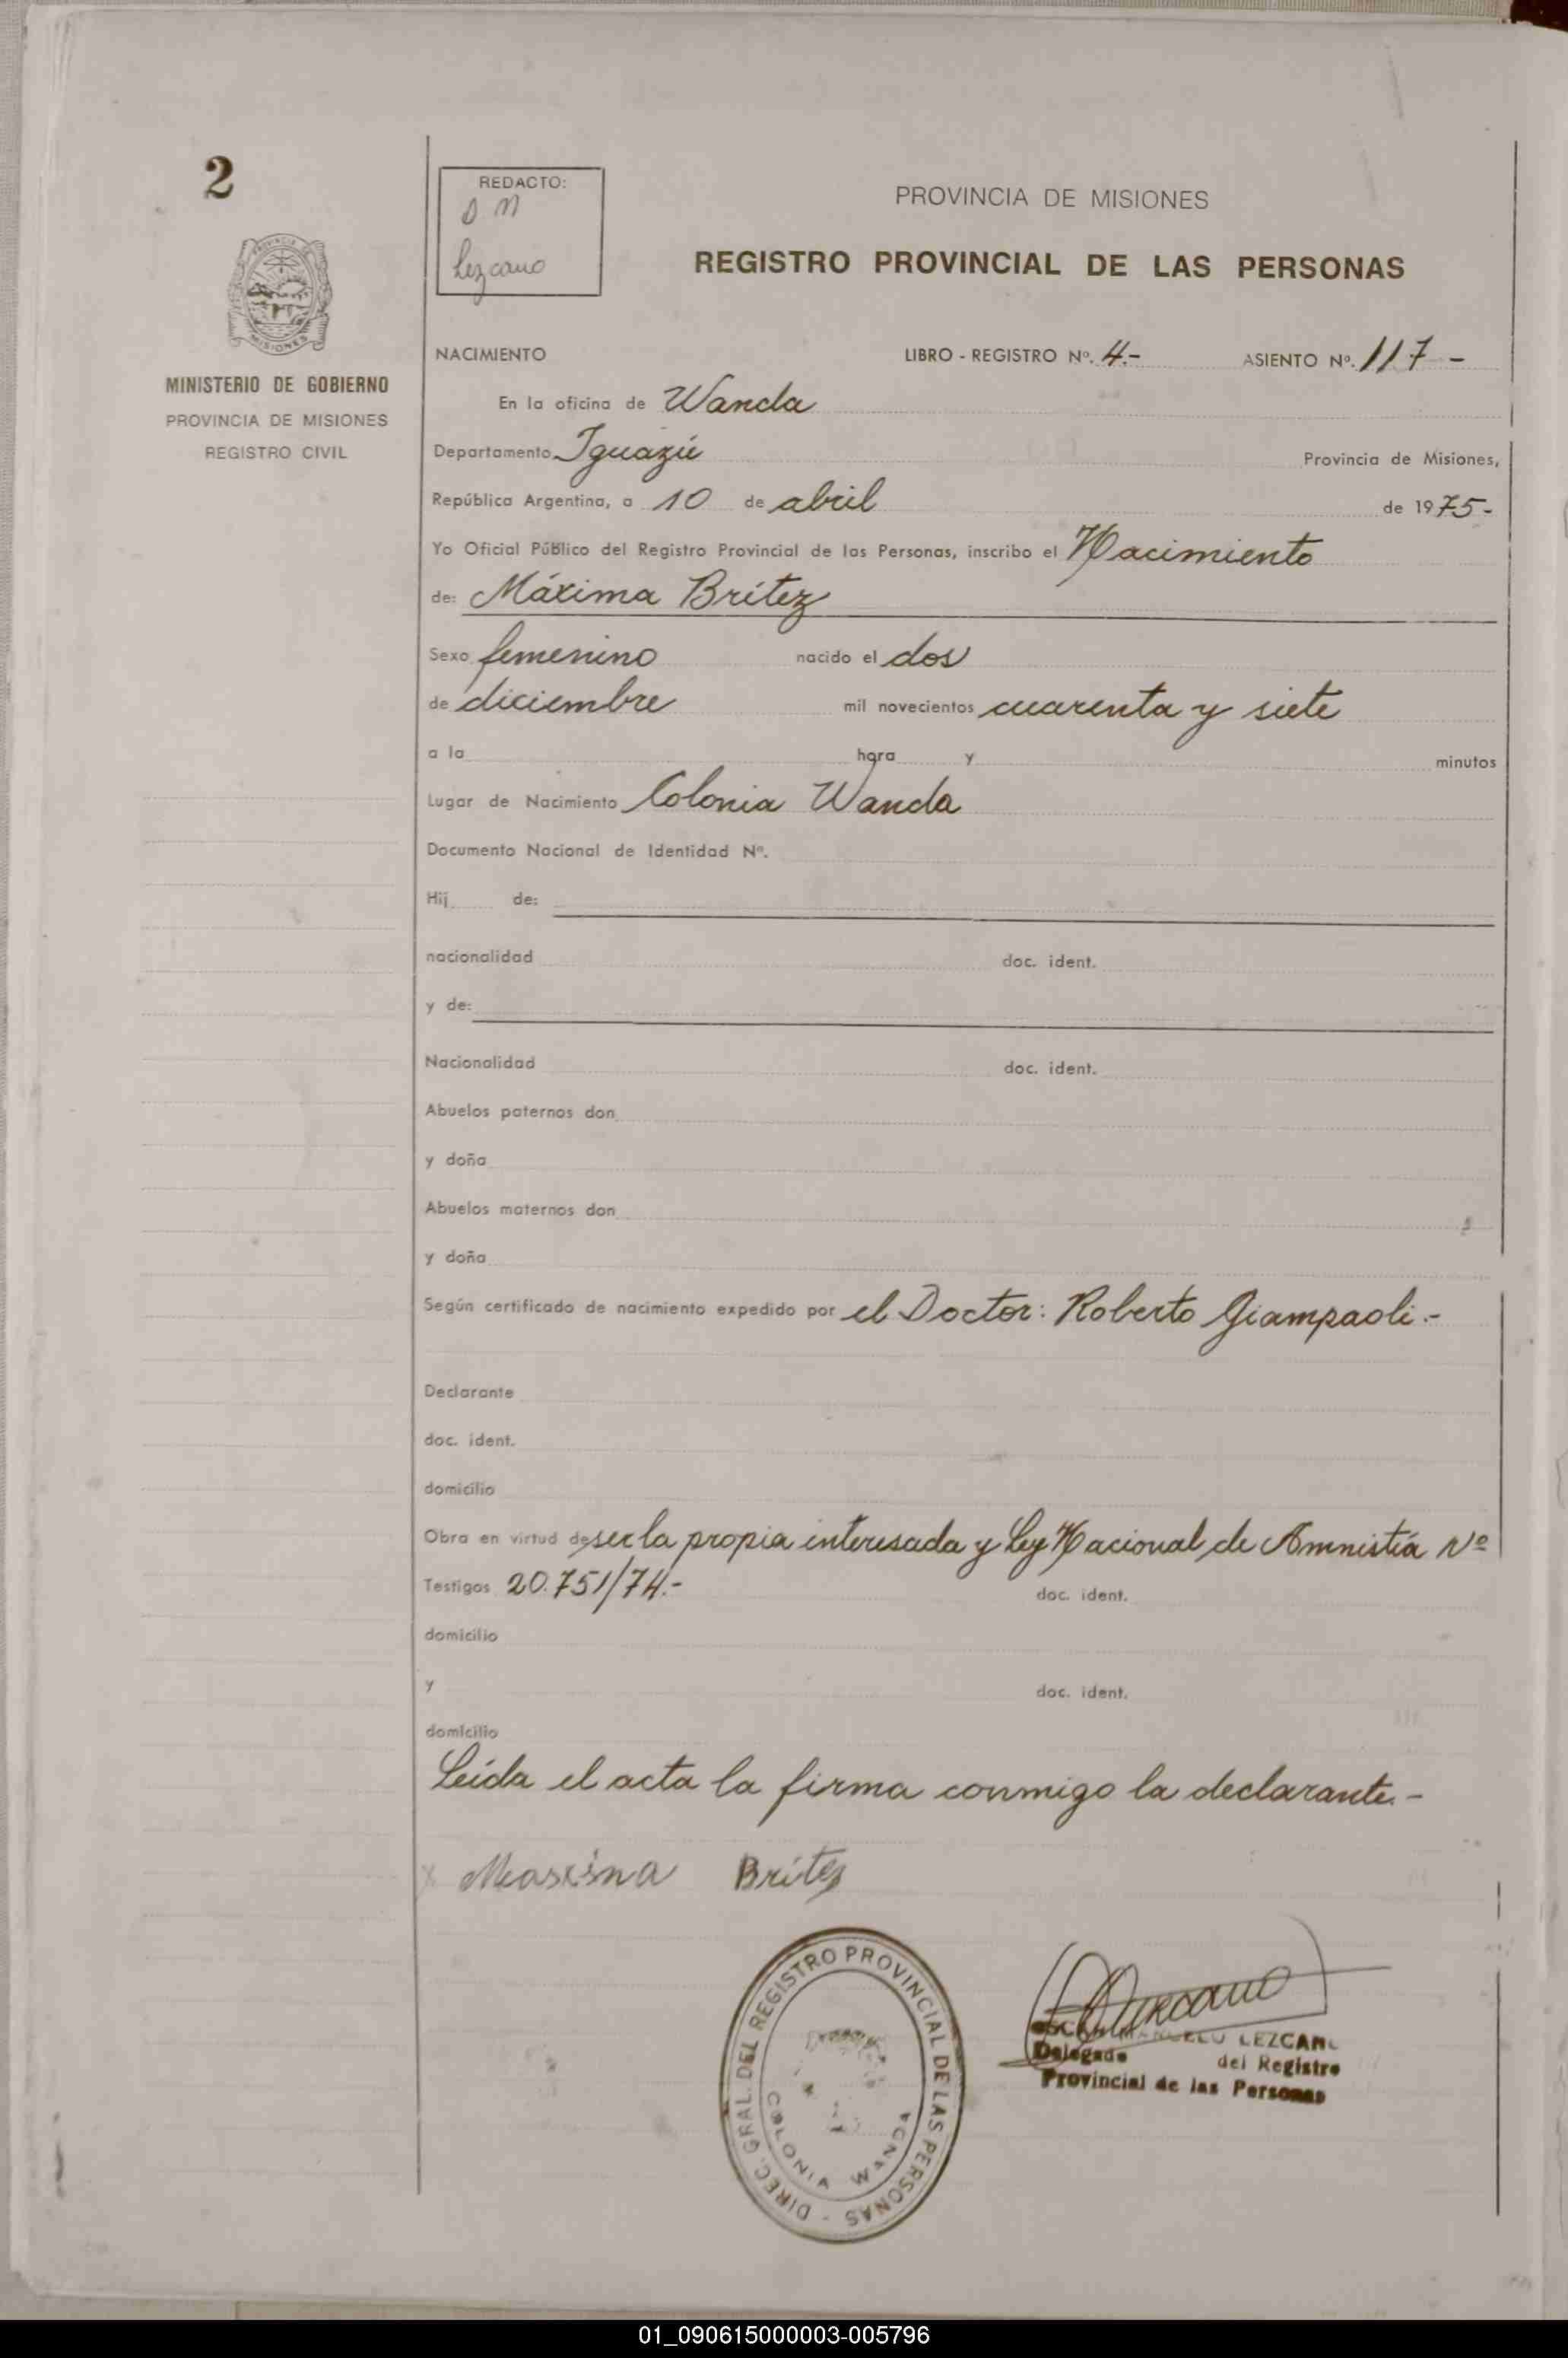 2
REDACTO:
O M
Lezcano
PROVINCIA DE MISIONES
REGISTRO PROVINCIAL DE LAS PERSONAS
MISIONES
MINISTERIO DE GOBIERNO
PROVINCIA DE MISIONES
REGISTRO CIVIL
NACIMIENTO LIBRO - REGISTRO Nº. 4.- ASIENTO Nº. 117 -
En la oficina de Wanda
Departamento Iguazú Provincia de Misiones,
República Argentina, a 10 de abril de 1975-
Yo Oficial Público del Registro Provincial de las Personas, inscribo el Nacimiento
de: Máxima Brítez
Sexo femenino nacido el dos
de diciembre mil novecientos cuarenta y siete
a la hora y minutos
Lugar de Nacimiento Colonia Wanda
Documento Nacional de Identidad Nº.
Hij de:
nacionalidad doc. ident.
y de:
Nacionalidad doc. ident.
Abuelos paternos don
y doña
Abuelos maternos don
y doña
Según certificado de nacimiento expedido por el Doctor: Roberto Giampaoli.-
Declarante
doc. ident.
domicilio
Obra en virtud de ser la propia interesada y Ley Nacional de Amnistía Nº
Testigos 20.751/74.- doc. ident.
domicilio
y doc. ident.
domicilio
Leída el acta la firma conmigo la declarante.-
x Masxima Britez
DIREC. GRAL. DEL REGISTRO PROVINCIAL DE LAS PERSONAS -
COLONIA WANDA
LEZCANO
Delegado del Registro
Provincial de las Personas
01_090615000003-005796